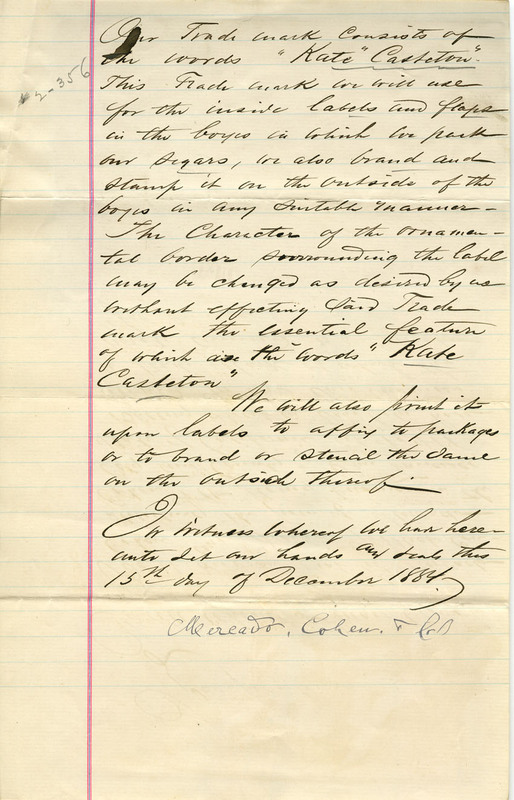 2-356
Our Trade mark consists of
the words "Kate" Casteton".
This Trade mark we will use
for the inside labels and flaps
in the boxes in which we pack
our segars, we also brand and
stamp it on the outside of the
boxes in any suitable manner-
The Character of the ornamen-
tal border sorrounding the label
may be changed as desired by us
without effecting said Trade
mark the essential feature
of which are the words "Kate
Casteton"
We will also print it
upon labels to affix to packages
or to brand or stencil the same
on the outside thereof.
In Witness whereof we have here-
unto set our hands and seals this
15th day of December 1884.
Mercado, Cohen, &